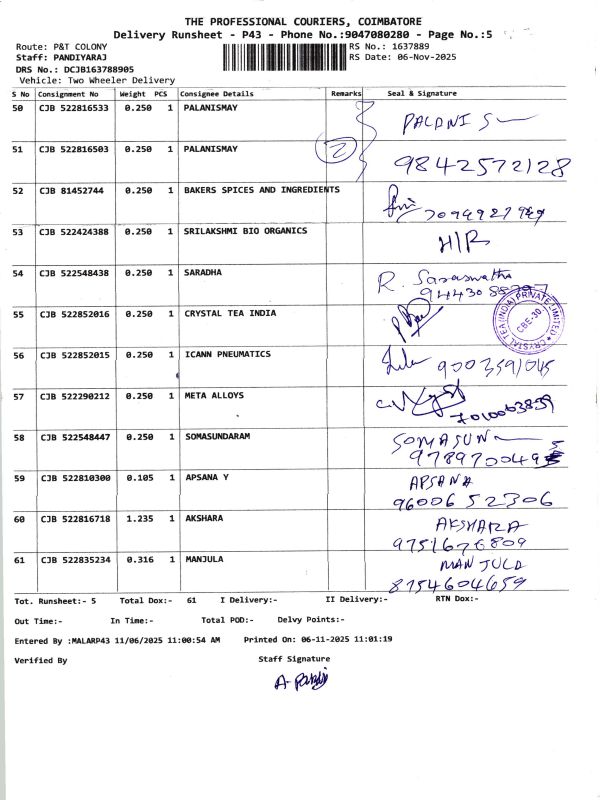 THE PROFESSIONAL COURIERS, COIMBATORE
Delivery Runsheet - P43 - Phone No.:9047080280 - Page No.:5
Route: P&T COLONY RS No.: 1637889
Staff: PANDIYARAJ RS Date: 06-Nov-2025
DRS No.: DCJB163788905
Vehicle: Two Wheeler Delivery
S No Consignment No Weight PCS Consignee Details Remarks Seal & Signature
50 CJB 522816533 0.250 1 PALANISMAY PALANI S
51 CJB 522816503 0.250 1 PALANISMAY 2 9842572128
52 CJB 81452744 0.250 1 BAKERS SPICES AND INGREDIENTS
53 CJB 522424388 0.250 1 SRILAKSHMI BIO ORGANICS H/R
54 CJB 522548438 0.250 1 SARADHA R. Saraswathi
55 CJB 522852016 0.250 1 CRYSTAL TEA INDIA CRYSTAL TEA (INDIA) PRIVATE LIMITED CBE-30.
56 CJB 522852015 0.250 1 ICANN PNEUMATICS 9003591045
57 CJB 522290212 0.250 1 META ALLOYS
58 CJB 522548447 0.250 1 SOMASUNDARAM SOMASUN
59 CJB 522810300 0.105 1 APSANA Y APSANA
9600652306
60 CJB 522816718 1.235 1 AKSHARA AKSHARA
9751676809
61 CJB 522835234 0.316 1 MANJULA MANJULA
8754604659
Tot. Runsheet:- 5 Total Dox:- 61 I Delivery:- II Delivery:- RTN Dox:-
Out Time:- In Time:- Total POD:- Delvy Points:-
Entered By :MALARP43 11/06/2025 11:00:54 AM Printed On: 06-11-2025 11:01:19
Verified By Staff Signature